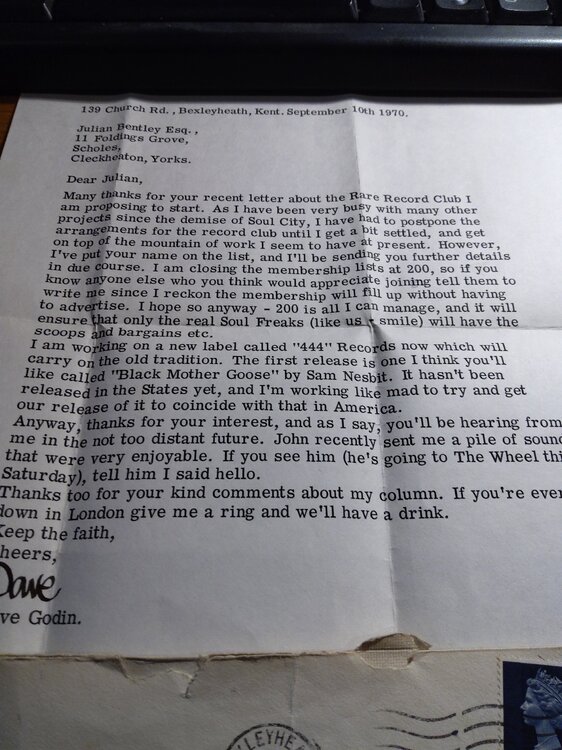 139 Church Rd., Bexleyheath, Kent. September 10th 1970.
Julian Bentley Esq.,
11 Foldings Grove,
Scholes,
Cleckheaton, Yorks.
Dear Julian,
Many thanks for your recent letter about the Rare Record Club I
am proposing to start. As I have been very busy with many other
projects since the demise of Soul City, I have had to postpone the
arrangements for the record club until I get a bit settled, and get
on top of the mountain of work I seem to have at present. However,
I've put your name on the list, and I'll be sending you further details
in due course. I am closing the membership lists at 200, so if you
know anyone else who you think would appreciate joining tell them to
write me since I reckon the membership will fill up without having
to advertise. I hope so anyway - 200 is all I can manage, and it will
ensure that only the real Soul Freaks (like us - smile) will have the
scoops and bargains etc.
I am working on a new label called "444" Records now which will
carry on the old tradition. The first release is one I think you'll
like called "Black Mother Goose" by Sam Nesbit. It hasn't been
released in the States yet, and I'm working like mad to try and get
our release of it to coincide with that in America.
Anyway, thanks for your interest, and as I say, you'll be hearing from
me in the not too distant future. John recently sent me a pile of soun
that were very enjoyable. If you see him (he's going to The Wheel thi
Saturday), tell him I said hello.
Thanks too for your kind comments about my column. If you're ever
down in London give me a ring and we'll have a drink.
Keep the faith,
heers,
Dave
ve Godin.
LLEYHEA